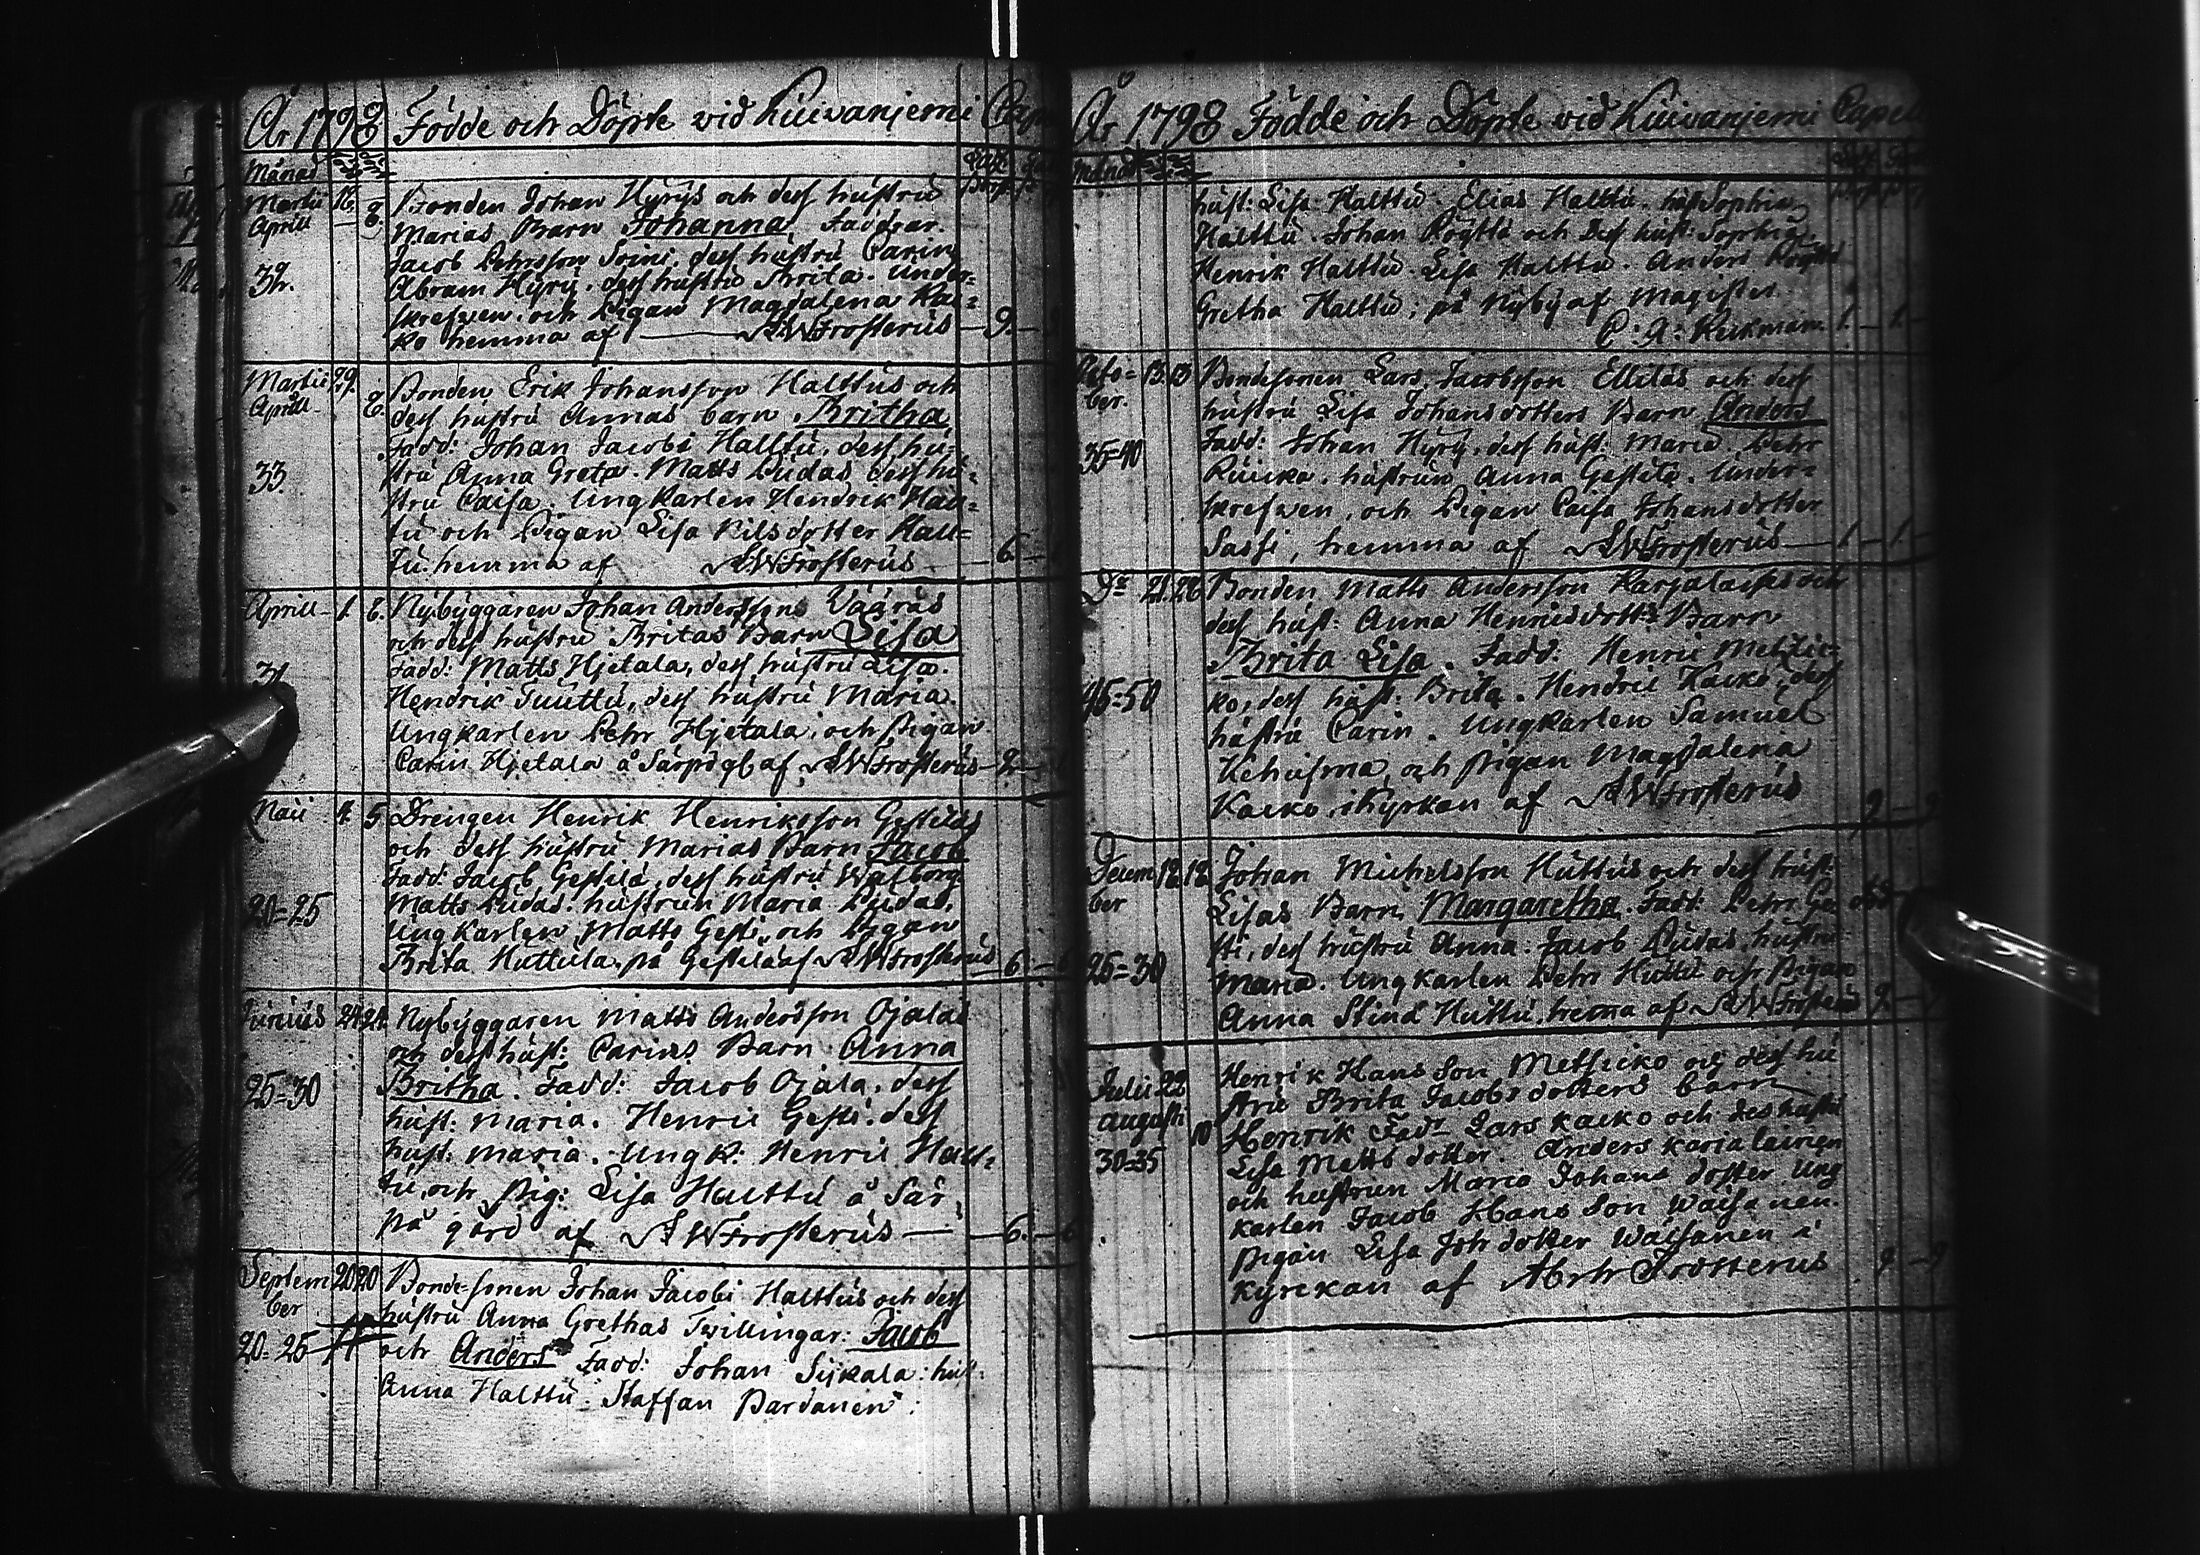 År 1798 Födde och Döpte vid Kuivanjemi Cap
Månad
Martii 16. Bonden Johan Hyrys och dess hustru
Aprill 8. Marias Barn Johanna Faddrar.
Jacob Pehrsson Soini, dess hustru Carin
32. Abram Hyry, dess hustru Brita. Under-
skrefwen, och Pigan Magdalena Kai-
ko hemma af A W Frosterus 9.
Martii 29. Bonden Erik Johansson Halttus och
Aprill 8. dess hustru Annas barn Britha
Fadd: Johan Jacobi Halttu, dess hu-
33. stru Anna Greta. Matts Ludas dess hu-
stru Caisa. Ungkarlen Hendrik Hal-
tu och Pigan Lisa Nilsdotter Halt-
tu hemma af A W Frosterus 6.
Aprill 1. 8. Nybyggaren Johan Anderssons Vääräs
och dess hustru Britas Barn Lisa
Fadd: Matts Hjetala, dess hustru Lisa.
Hendrik Tuuttu, dess hustru Maria.
Ungkarlen Pehr Hjetala, och Pigan
Carin Hjetala å Särpå gb af A W Frosterus
Maii 4. 5 Drengen Henrik Henriksson Gestilas
och dess hustru Marias Barn Jacob
Fadd: Jacob Gestila, dess hustru Walborg.
20=25 Matts Ludas. hustrun Maria Ludas.
Ungkarlen Matts Gesti, och Pigan
Brita Huttula, på Gestila af A W Frosterus 6.
Junius 24 24. Nybyggaren Matts Andersson Ojalas
och dess hust: Carins Barn Anna
25=30 Britha. Fadd: Jacob Ojala, dess
hust: Maria. Henric Gesti. dess
hust. Maria. Ungk: Henric Halt-
tu, och Pig: Lisa Halttu å Sär-
på gård af A W Frosterus 6. 6
Septem 20 20 Bonde-sonen Johan Jacobi Halttus och dess
ber hustru Anna Grethas Twillingar: Jacob
20=25 och Anders Fadd: Johan Sijkala: hus:
Anna Halttu: Staffan Pardanen:
År 1798 Födde och Döpte vid Kuivanjemi Capell
Månad
hust: Lisa Halttu. Elias Halttu. hus Sophia
Halttu. Johan Pöyttö och dess hust: Sophia.
Henrik Halttu. Lisa Halttu. Anders
Gretha Halttu; på Nyby af Magister
C: A: Keckman. 1. 1.
Octo= 13. 13 Bondesonen Lars Jacobsson Ellilas och dess
ber. hustru Lisa Johansdotters Barn Anders
35=40 Fadd: Johan Hyry, dess hust. Maria. Pehr
hustrun Anna Gestila. Under-
skrefwen, och Pigan Caisa Johansdotter
Sassi, hemma af A W Frosterus 1 1.
Bonden Matts Andersson Karjalaises och
dess hust: Anna Henricsdott:s Barn
Brita Lisa. Fadd: Henric Metzic-
46=50 ko, dess hust. Brita. Hendric Kaiko, dess
hustru Carin. Ungkarlen Samuel
Kehusma, och Pigan Magdalena
Kaiko, i Kyrkan af A W Frosterus
Decem 12 12 Johan Michelsson Huttus och dess hust:
ber Lisas Barn Margaretha. Fadd: Pehr Ge-
sti, dess hustru Anna. Jacob Ludas, hustru
25=30 Maria. Ungkarlen Pehr Huttu och Pigan
Anna Stina Huttu. hema af A W Frosterus
Henrik Hans Son Metsicko och dess hu
Julii 22 stru Brita Jacobs dotters barn
augusti 10 Henrik Fad Lars kaiko och des hustr
30=35 Lisa Matts dotter. Anders karialainen
och hustrun Maria Johans dotter ung
karlen Jacob Hans Son Waisanen
pigan Lisa Joh dotter Waisanen i
kyrckan af Abrh Frosterus